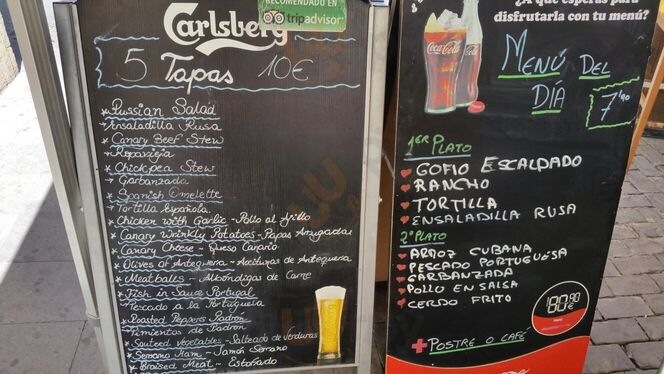 Carlsberg
RECOMENDADO EN
tripadvisor
5 Tapas 10€
* Russian Salad
Ensaladilla Rusa
* Canary Beef Stew
Ropavieja
* Chickpea Stew
Garbanzada
* Spanish Omelette
Tortilla Española
* Chicken with Garlic - Pollo al Ajillo
* Canary Wrinkly Potatoes - Papas Arrugadas
* Canary Cheese - Queso Canario
* Olives of Antequera - Aceitunas de Antequera
* Meatballs - Albóndigas de Carne
* Fish in Sauce Portugal
Pescado a la Portuguesa
* Roasted Peppers Padron
Pimientos de Padrón
* Sauteed vegetables - Salteado de verduras
* Serrano Ham - Jamón Serrano
* Braised Meat - Estofado
¿A qué esperas para
disfrutarla con tu menú?
Coca-Cola
MENÚ DEL
DIA
7'90
1ER PLATO
GOFIO ESCALDADO
RANCHO
TORTILLA
ENSALADILLA RUSA
2º PLATO
ARROZ CUBANA
PESCADO PORTUGUESA
GARBANZADA
POLLO EN SALSA
CERDO FRITO
+ POSTRE O CAFÉ